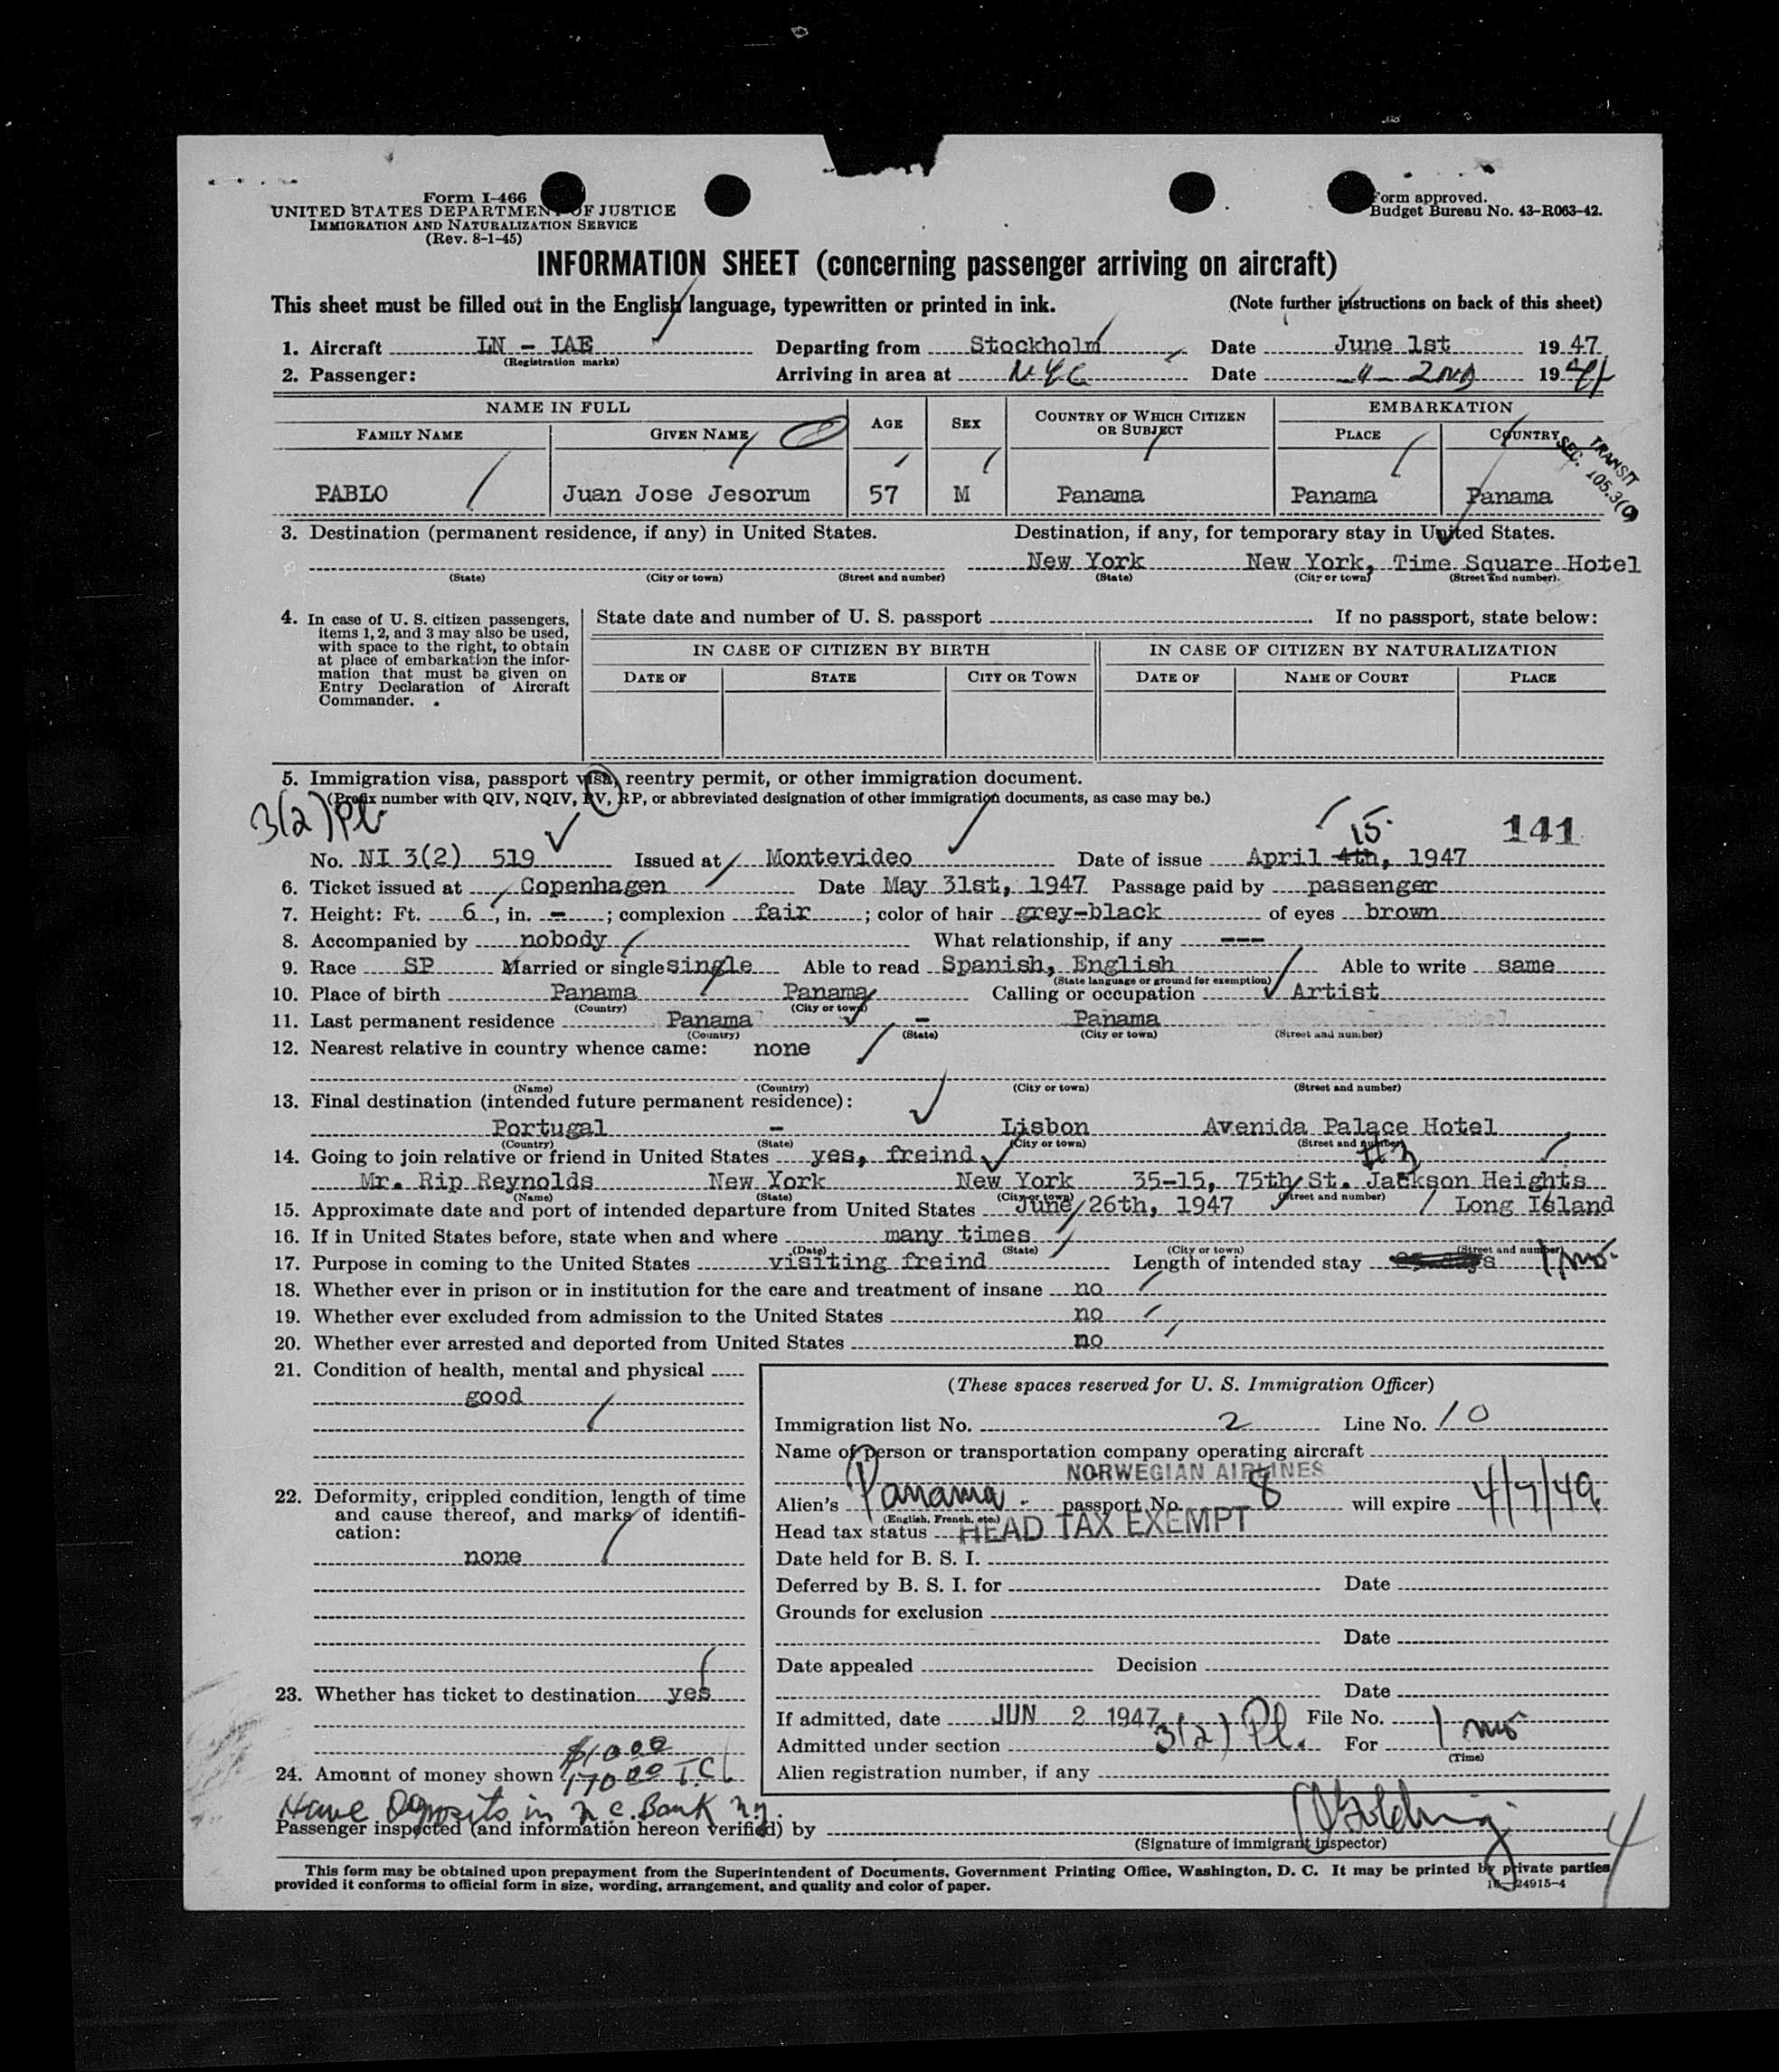 Form I-466
UNITED STATES DEPARTMENT OF JUSTICE
IMMIGRATION AND NATURALIZATION SERVICE
(Rev. 8-1-45)
Form approved.
Budget Bureau No. 43-R063-42.
INFORMATION SHEET (concerning passenger arriving on aircraft)
This sheet must be filled out in the English language, typewritten or printed in ink. (Note further instructions on back of this sheet)
1. Aircraft LN - IAE Departing from Stockholm Date June 1st 1947
(Registration marks)
2. Passenger: Arriving in area at NYC Date -"- 2ND 1947
NAME IN FULL AGE SEX COUNTRY OF WHICH CITIZEN OR SUBJECT EMBARKATION
FAMILY NAME GIVEN NAME PLACE COUNTRY
TRANSIT
SEC. 105.3(C)
PABLO Juan Jose Jesorum 57 M Panama Panama Panama
3. Destination (permanent residence, if any) in United States. Destination, if any, for temporary stay in United States.
New York New York, Time Square Hotel
(State) (City or town) (Street and number) (State) (City or town) (Street and number).
4. In case of U. S. citizen passengers, items 1, 2, and 3 may also be used, with space to the right, to obtain at place of embarkation the information that must be given on Entry Declaration of Aircraft Commander.
State date and number of U. S. passport If no passport, state below:
IN CASE OF CITIZEN BY BIRTH IN CASE OF CITIZEN BY NATURALIZATION
DATE OF STATE CITY OR TOWN DATE OF NAME OF COURT PLACE
5. Immigration visa, passport visa, reentry permit, or other immigration document.
(Prefix number with QIV, NQIV, PV, RP, or abbreviated designation of other immigration documents, as case may be.)
3(2) Pl.
15. 141
No. NI 3(2) 519 Issued at Montevideo Date of issue April 4th, 1947
6. Ticket issued at Copenhagen Date May 31st, 1947 Passage paid by passenger
7. Height: Ft. 6, in. -; complexion fair; color of hair grey-black of eyes brown
8. Accompanied by nobody What relationship, if any ---
9. Race SP Married or single single Able to read Spanish, English Able to write same
(State language or ground for exemption)
10. Place of birth Panama Panama Calling or occupation Artist
(Country) (City or town)
11. Last permanent residence Panama - Panama
(Country) (State) (City or town) (Street and number)
12. Nearest relative in country whence came: none
(Name) (Country) (City or town) (Street and number)
13. Final destination (intended future permanent residence):
Portugal - Lisbon Avenida Palace Hotel
(Country) (State) (City or town) (Street and number)
14. Going to join relative or friend in United States yes, freind
Mr. Rip Reynolds New York New York 35-15, 75th St. Jackson Heights
(Name) (State) (City or town) (Street and number)
15. Approximate date and port of intended departure from United States June 26th, 1947 Long Island
16. If in United States before, state when and where many times
(Date) (State) (City or town) (Street and number)
17. Purpose in coming to the United States visiting freind Length of intended stay 1 mo.
18. Whether ever in prison or in institution for the care and treatment of insane no
19. Whether ever excluded from admission to the United States no
20. Whether ever arrested and deported from United States no
21. Condition of health, mental and physical
good
22. Deformity, crippled condition, length of time and cause thereof, and marks of identification:
none
23. Whether has ticket to destination yes
$1000
24. Amount of money shown 1700 T.C.
Have Deposits in N.C. Bank N.Y.
(These spaces reserved for U. S. Immigration Officer)
Immigration list No. 2 Line No. 10
Name of person or transportation company operating aircraft
NORWEGIAN AIRLINES
Alien's Panama passport No. 8 will expire 4/7/49.
(English, French, etc.)
Head tax status HEAD TAX EXEMPT
Date held for B. S. I.
Deferred by B. S. I. for Date
Grounds for exclusion
Date
Date appealed Decision
Date
If admitted, date JUN 2 1947 File No.
Admitted under section 3(2) Pl. For 1 mo
(Time)
Alien registration number, if any
Passenger inspected (and information hereon verified) by
(Signature of immigrant inspector)
4
This form may be obtained upon prepayment from the Superintendent of Documents, Government Printing Office, Washington, D. C. It may be printed by private parties
provided it conforms to official form in size, wording, arrangement, and quality and color of paper. 16-24915-4